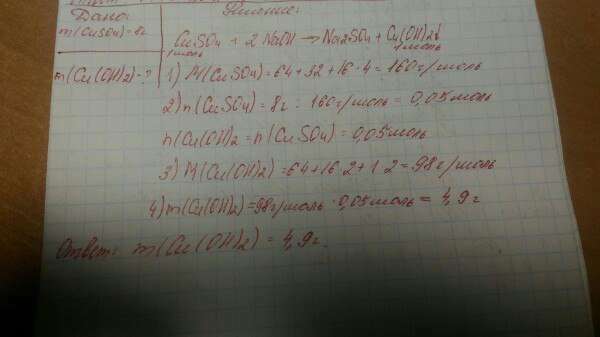 Дано:
Решение:
m(CuSO4)=8г
CuSO4 + 2 NaOH → Na2SO4 + Cu(OH)2↓
1моль 1моль
m(Cu(OH)2)-?
1) M(CuSO4)=64+32+16·4=160г/моль
2) n(CuSO4)=8г : 160г/моль = 0,05моль
n(Cu(OH)2=n(CuSO4)=0,05моль
3) M(Cu(OH)2)=64+16·2+1·2=98г/моль
4) m(Cu(OH)2)=98г/моль · 0,05моль = 4,9г
Ответ: m(Cu(OH)2) = 4,9г.